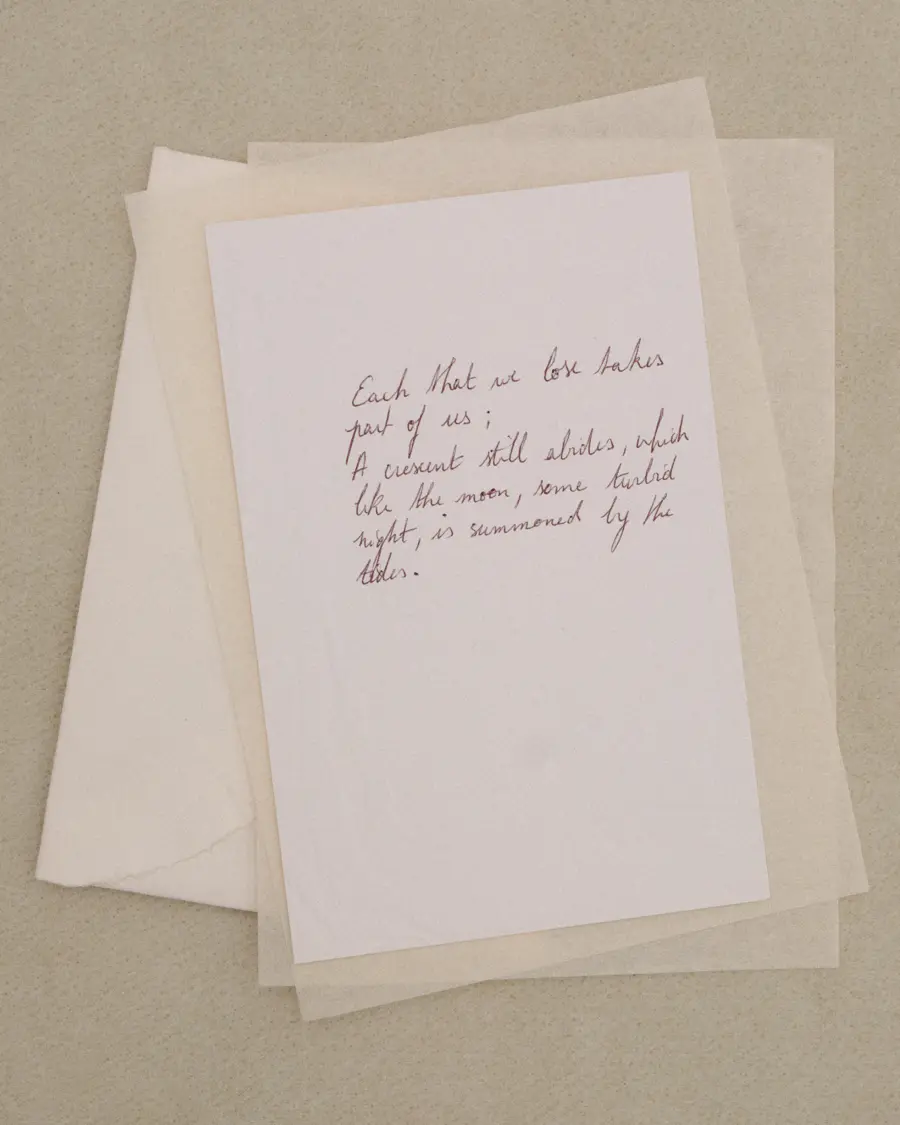 Each that we lose takes
part of us ;
A crescent still abides, which
like the moon, some turbid
night, is summoned by the
tides.